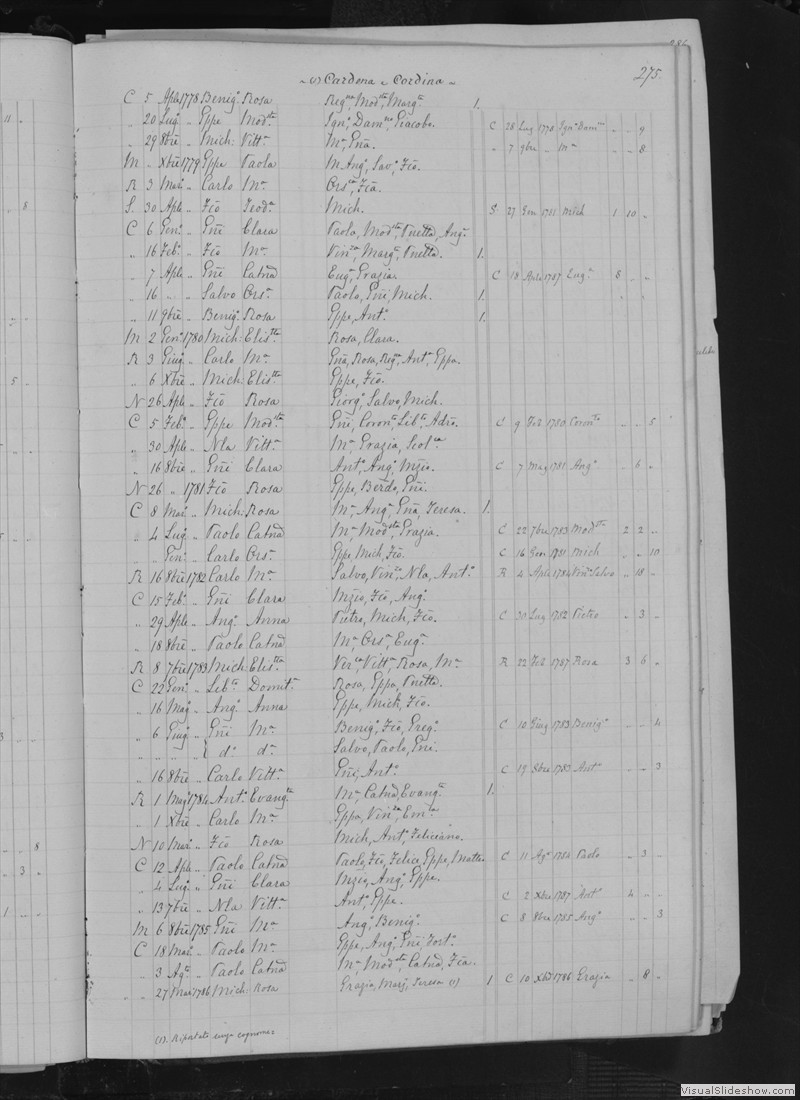 275.
~ (1) Cardona ~ Cordina ~
C 5 Aple 1778 Benig.o Rosa Reg.na, Mod.ta, Marg.a 1.
„ 20 Lug.o „ Gppe Mod.ta Ign.o, Dam.no, Giacobe. C 28 Lug 1778 Ign.o Dam.no „ „ 9
„ 29 8bre „ Mich: Vitt.a M.a, Gña. „ 7 9bre „ M.a „ „ 8
M „ Xbre 1779 Gppe Paola M. Ang.a, Sav.a, Fco.
R 3 Mar.o „ Carlo M.a Ors.la, Fca.
S. 30 Aple „ Fco Teod.a Mich. S 27 Gen 1781 Mich 1 10 „
C 6 Gen.o „ Gñi Clara Paola, Mod.sta, Pnetta, Ang.a
„ 16 Feb.o „ Fco M.a Vin.za, Marg.a, Pnetta. 1.
„ 7 Aple „ Gñi Catñd Eug.a, Grazia. C 18 Aple 1787 Eug.a 8 „ „
„ 16 „ „ Salvo Ors.a Paolo, Gñi, Mich. 1.
„ 11 9bre „ Benig.o Rosa Gppe, Ant.o 1.
M 2 Gen.o 1780 Mich: Elis.tta Rosa, Clara.
R 3 Giug.o „ Carlo M.a Gña, Rosa, Reg.na, Ant.a, Gppa.
„ 6 Xbre „ Mich: Elis.tta Gppe, Fco.
N 26 Aple „ Fco Rosa Giorg.o, Salvo, Mich.
C 5 Feb.o „ Gppe Mod.sta Gñi, Coron.ta, Lib.ta, Adr.o C 9 Feb 1780 Coron.ta „ „ 5
„ 30 Aple „ Nla Vitt.a M.a, Grazia, Scol.ca
„ 16 8bre „ Gñi Clara Ant.o, Ang.o, Mzio. C 7 Mag 1781 Ang.o „ 6 „
N 26 „ 1781 Fco Rosa Gppe, Berdo, Gñi.
C 8 Mar.o „ Mich: Rosa M.a, Ang.a, Gña, Teresa. 1.
„ 4 Lug.o „ Paolo Catñd M.a, Mod.sta, Grazia. C 22 7bre 1783 Mod.sta 2 2 „
„ „ Gen.o „ Carlo Ors.a Gppe, Mich, Fco. C 16 Gen 1781 Mich „ „ 10
R 16 8bre 1782 Carlo M.a Salvo, Vin.zo, Nla, Ant.o R 4 Aple 1784 Vin.o Salvo „ 18 „
C 15 Feb.o „ Gñi Clara Mzio, Fco, Ang.o
„ 29 Aple „ Ang.o Anna Pietro, Mich, Fco. C 30 Lug 1782 Pietro „ 3 „
„ 18 8bre „ Paolo Catñd M.a, Ors.a, Eug.a
R 8 7bre 1783 Mich: Elis.tta Ver.ca, Vitt.a, Rosa, M.a R 22 Feb 1787 Rosa 3 6 „
C 22 Gen.o „ Lib.to Domit.a Rosa, Gppa, Pnetta.
„ 16 Mag.o „ Ang.o Anna Gppe, Mich, Fco.
„ 6 Giug.o „ Gñi M.a Benig.o, Fco, Greg.o C 10 Giug 1783 Benig.o „ „ 4
„ „ „ „ { d.o d.a Salvo, Paolo, Gñi.
„ 16 8bre „ Carlo Vitt.a Gñi, Ant.o C 19 8bre 1783 Ant.o „ „ 3
R 1 Mag.o 1784 Ant.o Evang.ta M.a, Catñd, Evang.a 1.
„ 1 Xbre „ Carlo M.a Gppa, Vin.za, Em.la
N 10 Mar.o „ Fco Rosa Mich, Ant.o, Feliciano.
C 12 Aple „ Paolo Catñd Paolo, Fco, Felice, Gppe, Matteo C 11 Ag.o 1784 Paolo „ 3 „
„ 4 Lug.o „ Gñi Clara Mzio, Ang.o, Gppe.
„ 13 7bre „ Nla Vitt.a Ant.o, Gppe. C 2 Xbre 1787 Ant.o 4 „ „
M 6 8bre 1785 Gñi M.a Ang.o, Benig.o C 8 8bre 1785 Ang.o „ „ 3
C 18 Mar.o „ Paolo M.a Gppe, Ang.o, Gñi, Fort.o
„ 3 Ag.o „ Paolo Catñd M.a, Mod.sta, Catñd, Fca.
„ 27 Mar 1786 Mich: Rosa Grazia, Marj, Teresa (1) 1 C 10 Xbre 1786 Grazia „ 8 „
(1). Riportato senza cognome:
VisualSlideshow.com